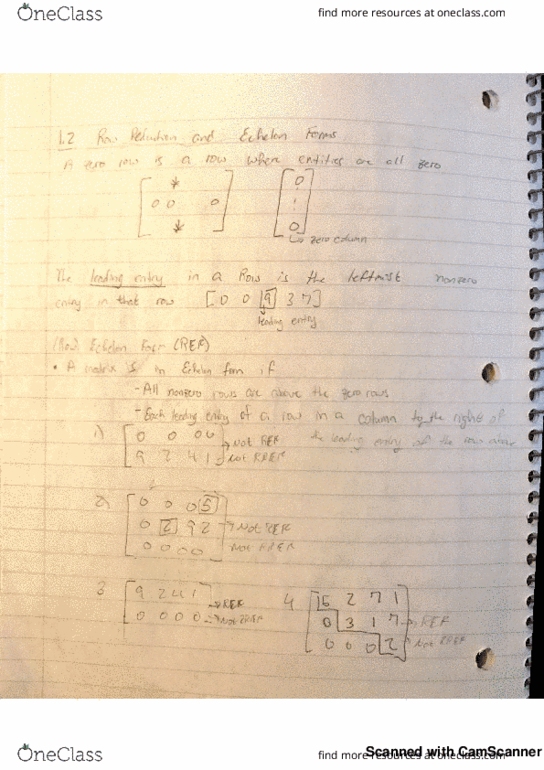 OneClass
find more resources at oneclass.com
1.2 Row Reduction and Echelon Forms
A zero row is a row where entities are all zero
0 0 0
0
0
↳ zero column
The leading entry in a Row is the leftmost nonzero
entry in that row [0 0 9 3 7]
leading entry
(Row Echelon Form (REF)
• A matrix is in Echelon form if
- All nonzero rows are above the zero rows
- Each leading entry of a row in a column to the right of
the leading entry of the row above
1) 0 0 0 0 Not REF
9 2 4 1 Not RREF
2) 0 0 0 5
0 2 9 2 → Not REF
0 0 0 0 Not RREF
3 9 2 4 1 → REF
0 0 0 0 → Not RREF
4 5 2 7 1
0 3 1 7 → REF
0 0 0 2 Not RREF
Scanned with CamScanner
OneClass
find more resources at oneclass.com